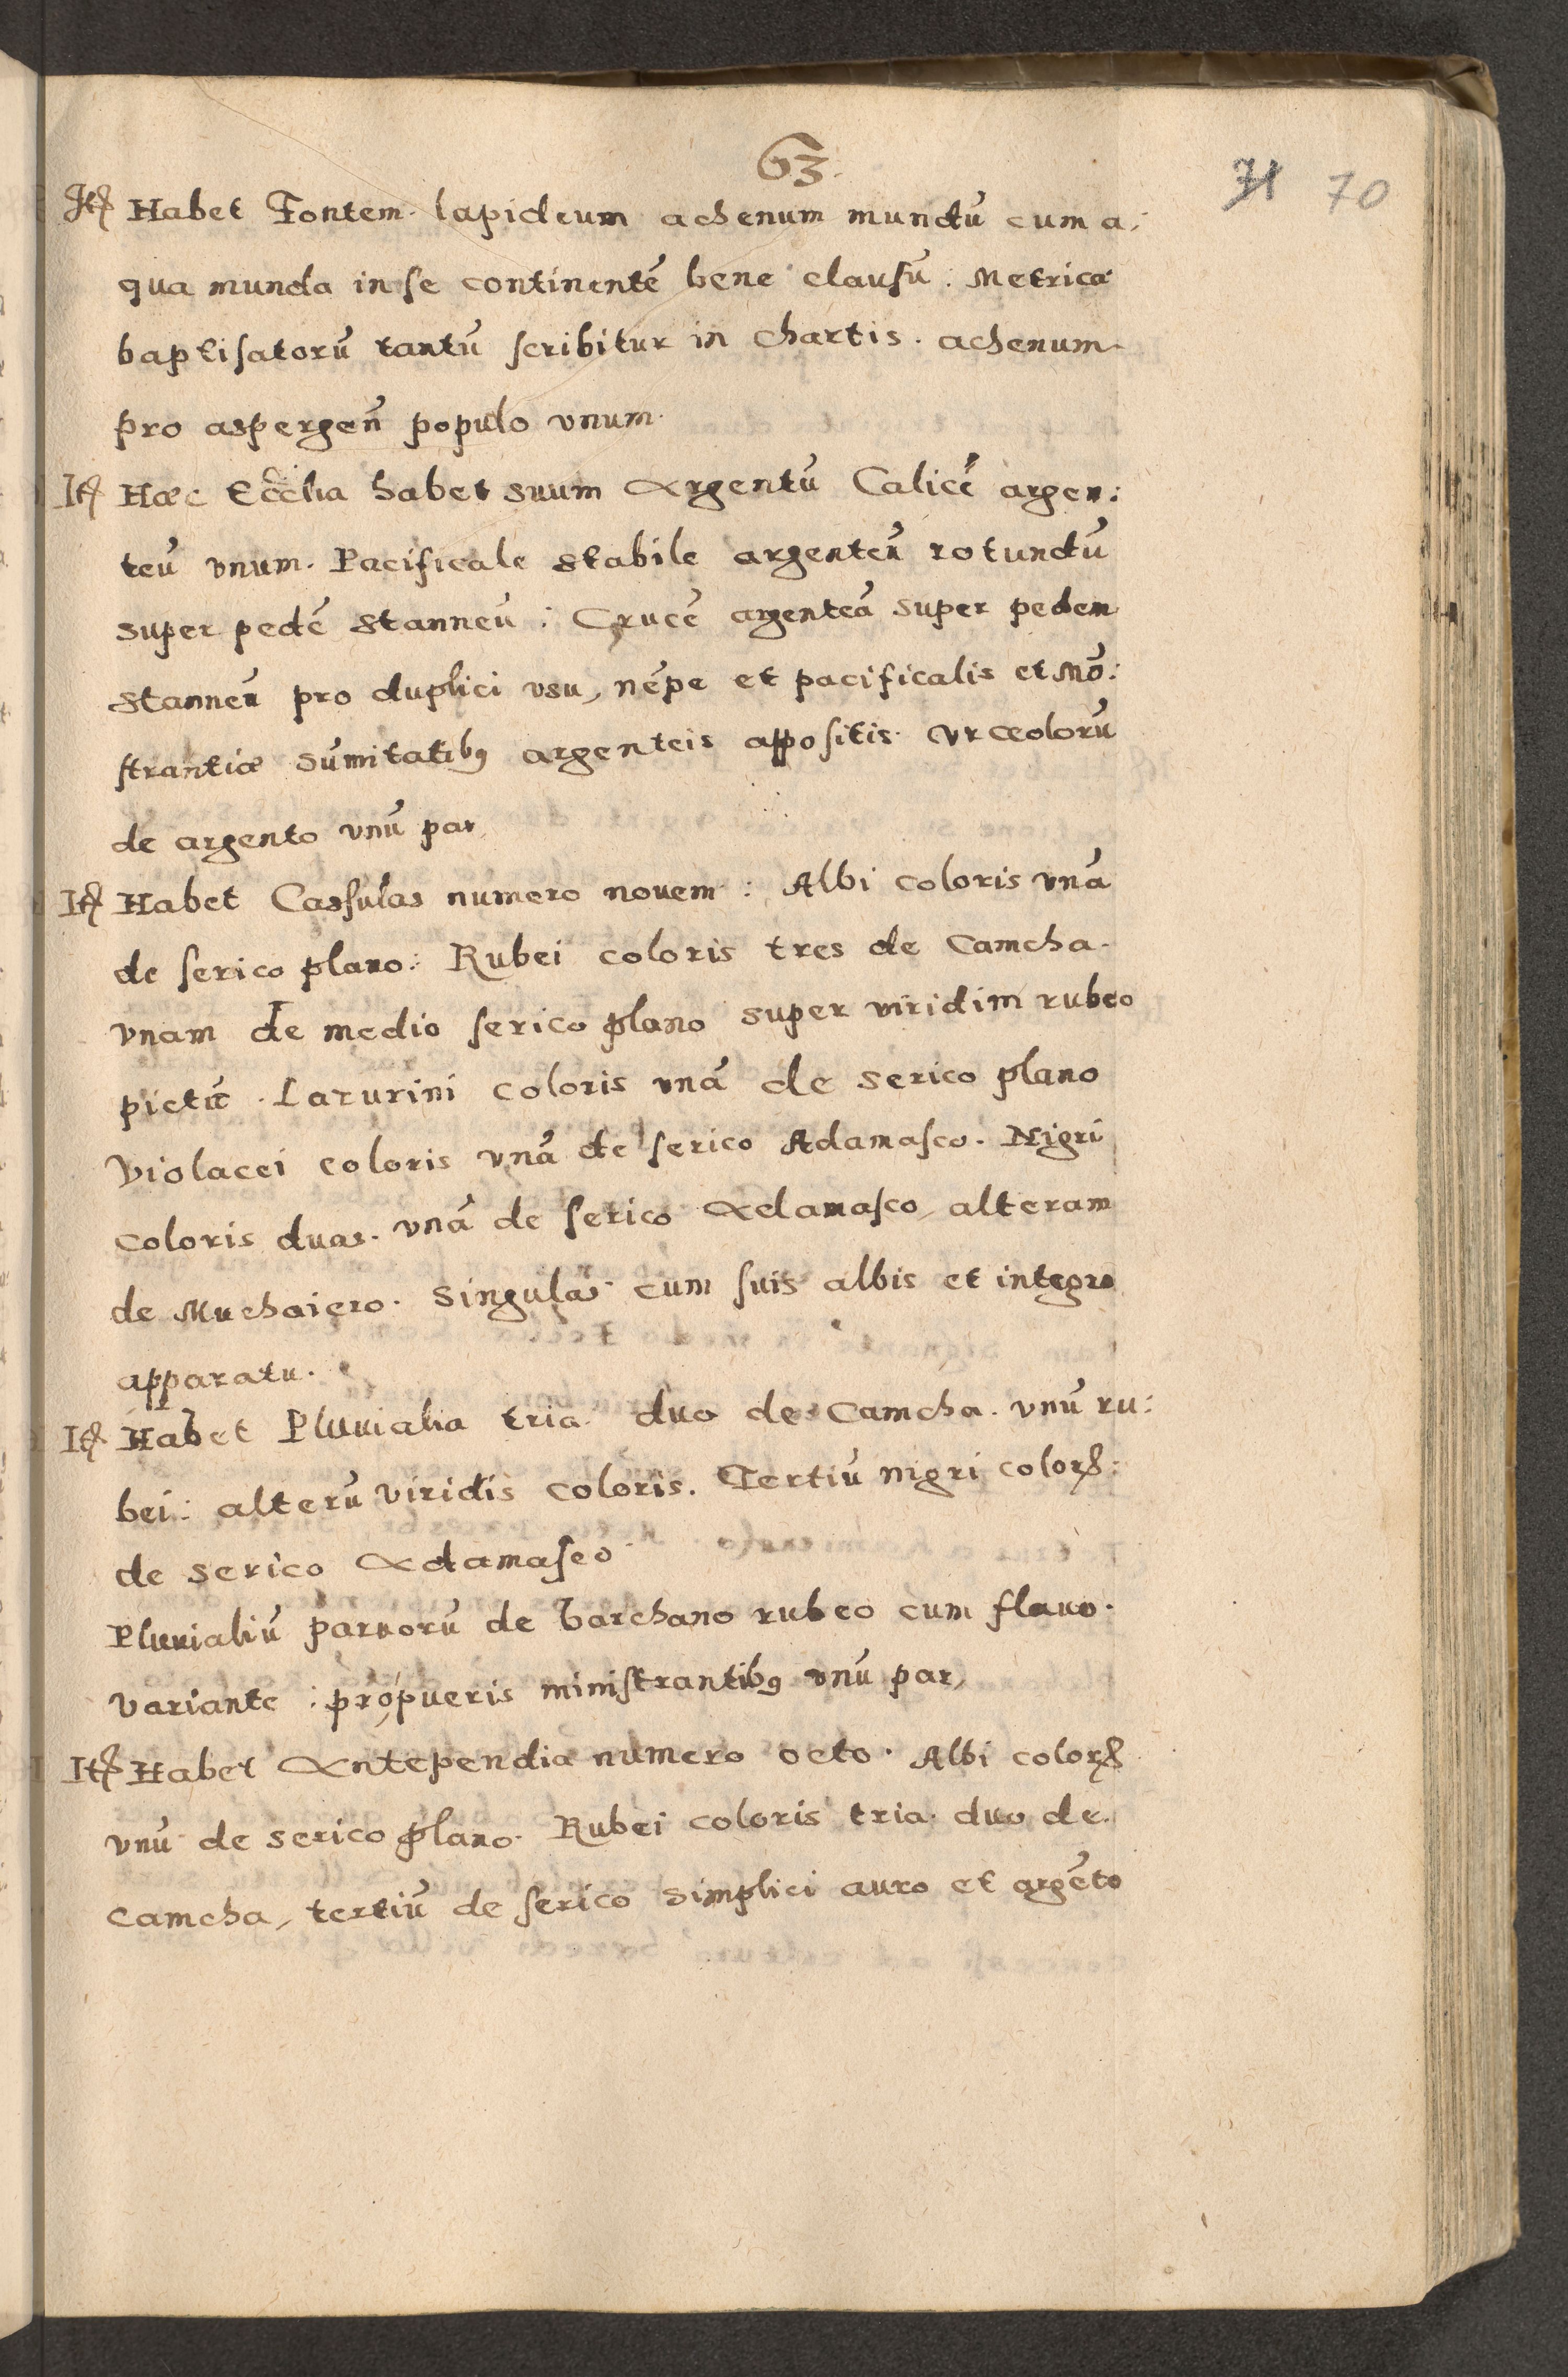 63.
71 70
Itē Habet Fontem lapideum achenum mundū cum a:
qua munda in se continentē bene clausū: Metrica
baptisatorū tantū scribitur in chartis. achenum
pro aspergen̄ populo vnum.
Itē Haec Eccl̄ia habet suum Argentū Calicē argen:
teū vnum. Pacificale stabile argenteū rotundū
super pedē stanneū: Crucē argenteā super pedem
stanneū pro duplici vsu, nēpe et pacificalis et Mō:
strantiæ sūmitatibꝰ argenteis appositis. Vrceolorū
de argento vnū par,
Itē Habet Cassulas numero nouem: Albi coloris vnā
de serico plano: Rubei coloris tres de Camcha.
vnam de medio serico plano super viridim rubeo
pictū. Lazurini coloris vnā de serico plano
Violacei coloris vnā de serico Adamasco. Nigri
coloris duas. vnā de serico Adamasco, alteram
de Muchaiero. Singulas cum suis albis et integro
apparatu.
Itē Habet Pluuialia tria. duo de Camcha. vnū ru:
bei: alterū viridis coloris. Tertiū nigri coloris:
de serico Adamasco.
Pluuialiū paruorū de barchano rubeo cum flauo.
variante: pro pueris ministrantibꝰ vnū par,
Itē Habet Antependia numero octo. Albi coloris
vnū de serico plano. Rubei coloris tria. duo de.
Camcha, tertiū de serico simplici auro et argēto